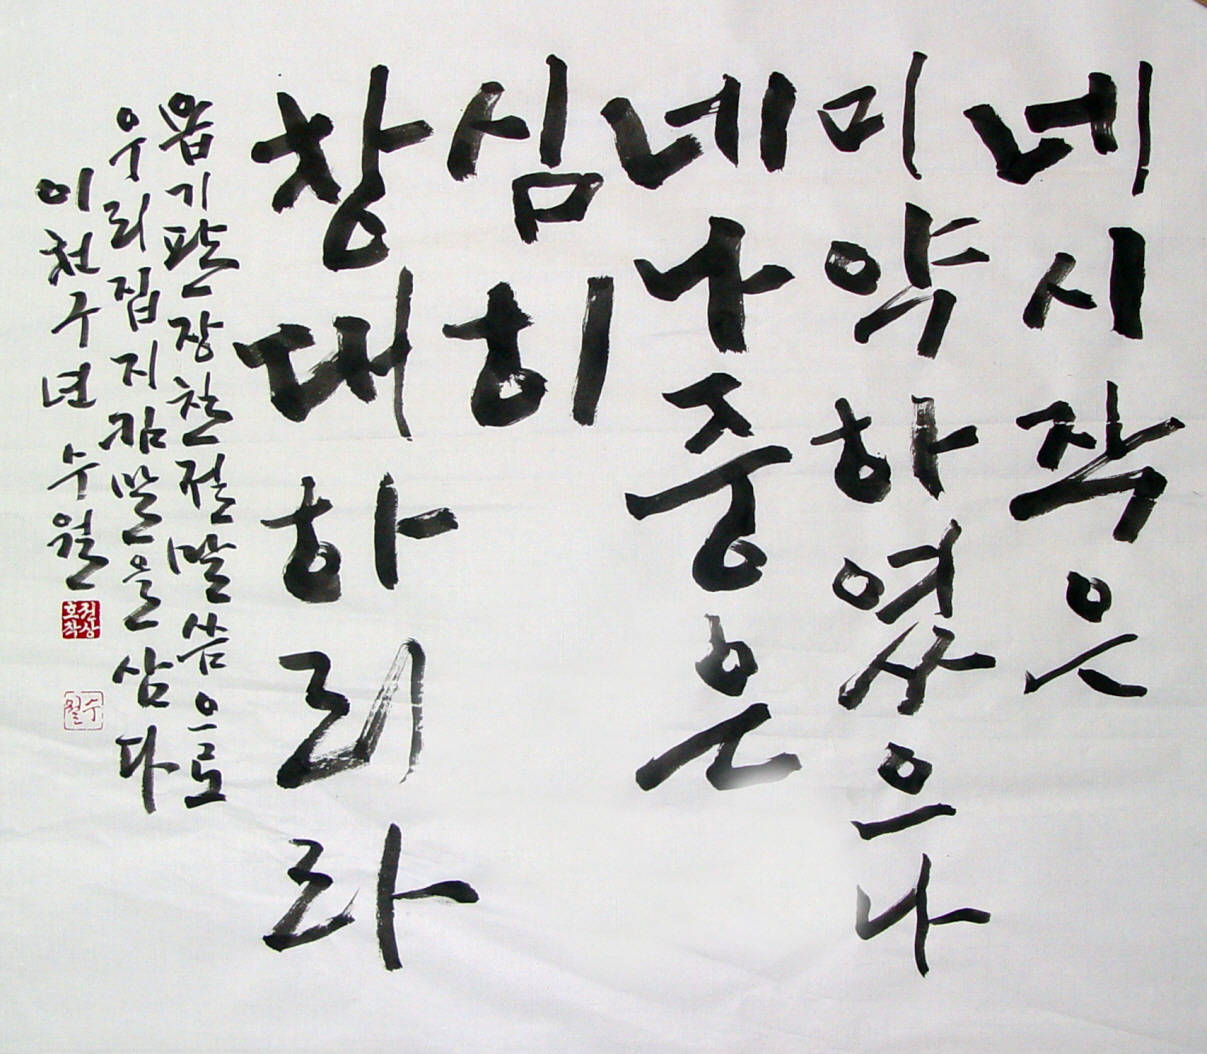 네시작은
미약하였으나
네나중은
심히
창대하리라
욥기팔장칠절말씀으로
우리집지킴말을삼다
이천구년 수월
수월